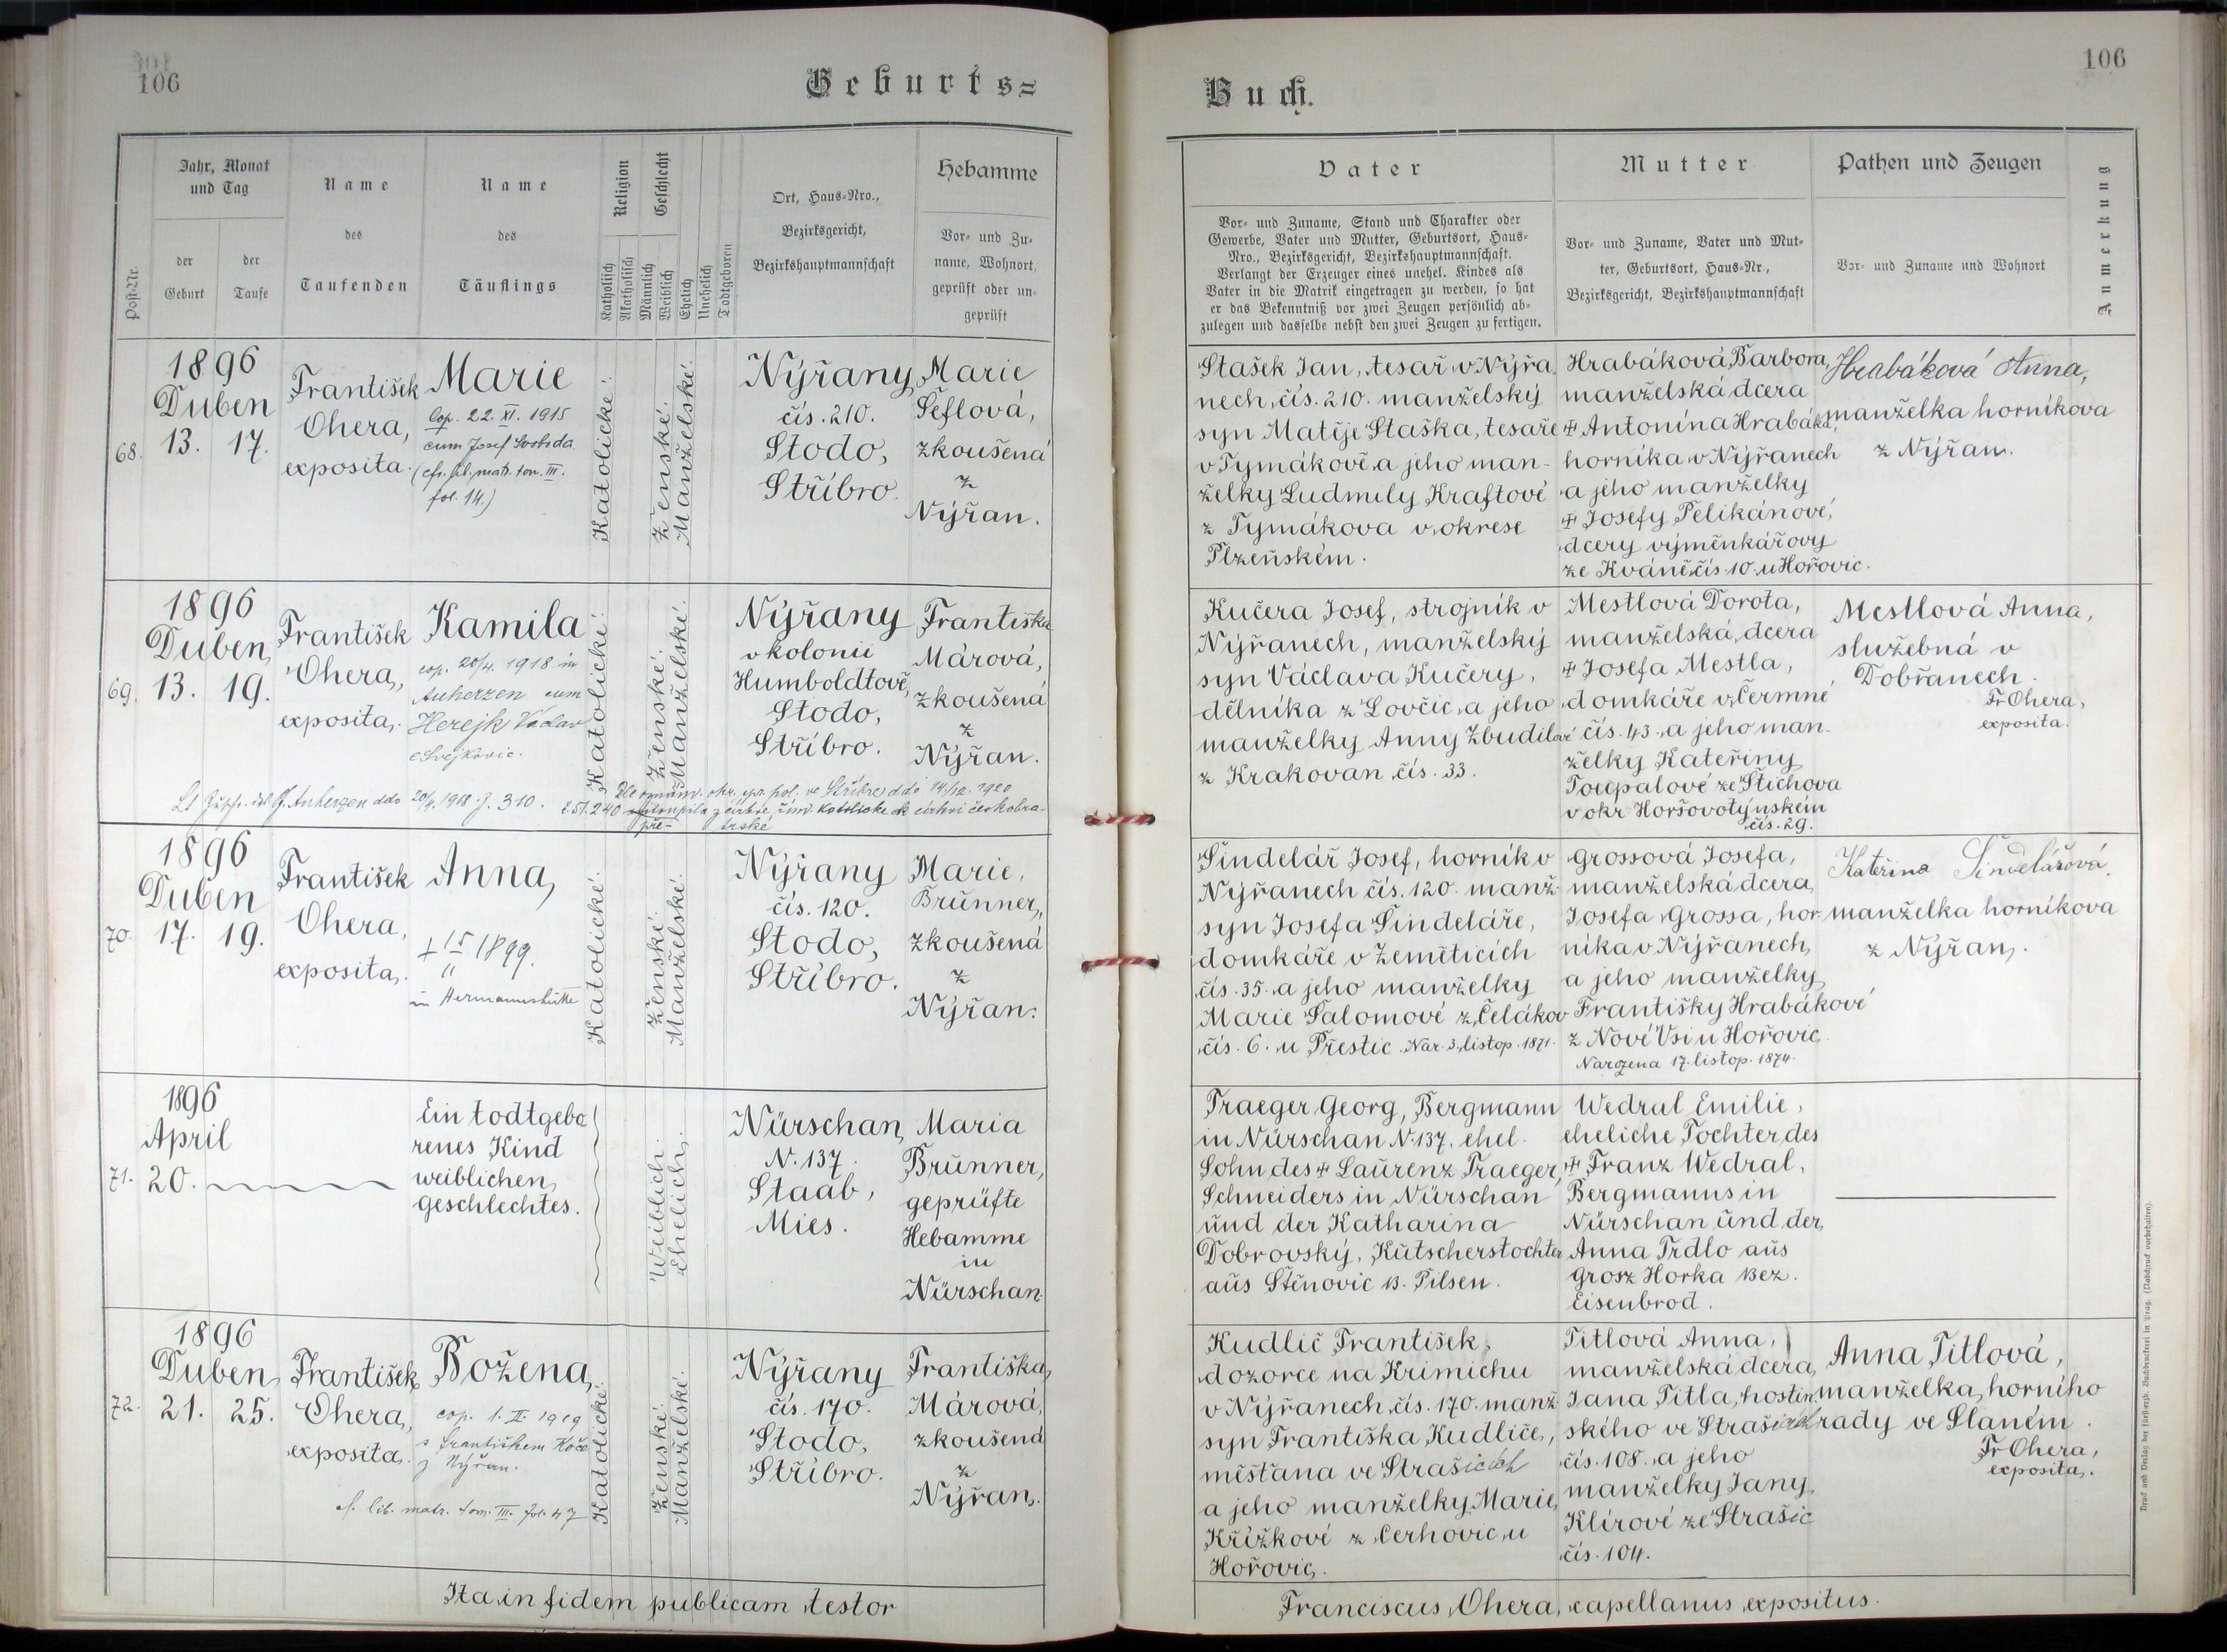 106
Geburts=
Jahr, Monat
und Tag
Name
Name
Religion
Geschlecht
Ort, Haus=Nro.,
Bezirksgericht,
Bezirkshauptmannschaft
Hebamme
Post=Nr.
der
Geburt
der
Taufe
des
Taufenden
des
Täuflings
Katholisch
Akatholisch
Männlich
Weiblich
Ehelich
Unehelich
Todtgeboren
Vor= und Zu=
name, Wohnort,
geprüft oder un=
geprüft
68.
1896
Duben
13. 17.
František
Ohera,
exposita.
Marie
Cop. 22. XI. 1915
cum Josef Svoboda
(cfr. lib. matr. tom. III.
fol. 14.)
Katolické.
Ženské.
Manželské.
Nýřany
čís. 210.
Stodo,
Stříbro.
Marie
Šeflová,
zkoušená
z
Nýřan.
69.
1896
Duben
13. 19.
František
Ohera,
exposita.
Kamila
cop. 20/4. 1918 in
Auherzen cum
Herejk Václav
Katolické.
Ženské.
Manželské.
Nýřany
v kolonii
Humboldtově,
Stodo,
Stříbro.
Františka
Márová,
zkoušená
z
Nýřan.
Auherzen ddo 20/4. 1918 J. 310.
Dle oznám. okr. spr. pol. ve Stříbře ddo 14/12. 1920
č. 51.240 z církve řím. katolické k církvi českobra-
pře- trské
70.
1896
Duben
17. 19.
František
Ohera,
exposita.
Anna,
1899.
in Hermannshütte
Katolické.
Ženské.
Manželské.
Nýřany
čís. 120.
Stodo,
Stříbro.
Marie,
Brünner,
zkoušená
z
Nýřan.
71.
1896
April
20.
Ein todtgebo
renes Kind
weiblichen
Geschlechtes.
Weiblich.
Ehelich.
Nürschan
N. 137.
Staab,
Mies.
Maria
Brünner,
geprüfte
Hebamme
in
Nürschan.
72.
1896
Duben
21. 25.
František
Ohera,
exposita.
Božena,
cop. 1. II. 1919
s Františkem
z Nýřan.
cf. lib. matr. tom. III. fol. 47
Katolické.
Ženské.
Manželské.
Nýřany
čís. 170.
Stodo,
Stříbro.
Františka
Márová,
zkoušená
z
Nýřan.
Ita in fidem publicam testor
106
Buch.
Vater
Mutter
Pathen und Zeugen
Anmerkung
Vor= und Zuname, Stand und Charakter oder
Gewerbe, Vater und Mutter, Geburtsort, Haus=
Nro., Bezirksgericht, Bezirkshauptmannschaft.
Verlangt der Erzeuger eines unehel. Kindes als
Vater in die Matrik eingetragen zu werden, so hat
er das Bekenntniß vor zwei Zeugen persönlich ab=
zulegen und dasselbe nebst den zwei Zeugen zu fertigen.
Vor= und Zuname, Vater und Mut=
ter, Geburtsort, Haus=Nr.,
Bezirksgericht, Bezirkshauptmannschaft
Vor= und Zuname und Wohnort
Stašek Jan, tesař v Nýřa
nech, čís. 210. manželský
syn Matěje Staška, tesaře
v Tymákově, a jeho man-
želky Ludmily Kraftové
z Tymákova v okrese
Plzeňském.
Hrabáková Barbora,
manželská dcera
✝ Antonína Hrabáka,
horníka v Nýřanech
a jeho manželky
✝ Josefy Pelikánové,
dcery výměnkářovy
ze Kváně čís. 10. u Hořovic.
Hrabáková Anna,
manželka horníkova
z Nýřan.
Kučera Josef, strojník v
Nýřanech, manželský
syn Václava Kučery,
dělníka z Lovčic, a jeho
manželky Anny Zbudilové
z Krakovan, čís. 33.
Mestlová Dorota,
manželská dcera
✝ Josefa Mestla,
domkáře v Čermné
čís. 43. a jeho man-
želky Kateřiny
Toupalové ze Štichova
v okr. Horšovotýnském
čís. 29.
Mestlová Anna,
služebná v
Dobřanech.
Fr Ohera,
exposita.
Šindelář Josef, horník v
Nýřanech čís. 120. manž.
syn Josefa Šindeláře,
domkáře v Zeměticích
čís. 35. a jeho manželky
Marie Šalomové z Čelákov
čís. 6. u Přestic. Nar. 3. listop. 1871.
Grossová Josefa,
manželská dcera
Josefa Grossa, hor-
níka v Nýřanech,
a jeho manželky
Františky Hrabákové
z Nové Vsi u Hořovic.
Narozena 17. listop. 1874.
Kateřina Šindelářová,
manželka horníkova
z Nýřan.
Traeger Georg, Bergmann
in Nürschan N. 137. ehel.
Sohn des ✝ Laurenz Traeger,
Schneiders in Nürschan
und der Katharina
Dobrovský, Kutscherstochter
aus Stěnovic B. Pilsen.
Wedral Emilie,
eheliche Tochter des
✝ Franz Wedral,
Bergmanns in
Nürschan und der
Anna Trdlo aus
Grosz Horka Bez.
Eisenbrod.
Kudlič František,
dozorce na Krimichu
v Nýřanech, čís. 170. manž.
syn Františka Kudliče,
měšťana ve Strašicích
a jeho manželky Marie
Křížkové z Cerhovic u
Hořovic.
Titlová Anna,
manželská dcera
Jana Titla, hostin-
ského ve Strašicích
čís. 108. a jeho
manželky Jany
Klírové ze Strašic
čís. 104.
Anna Titlová,
manželka horního
rady ve Slaném.
Fr Ohera,
exposita.
Franciscus Ohera, capellanus expositus.